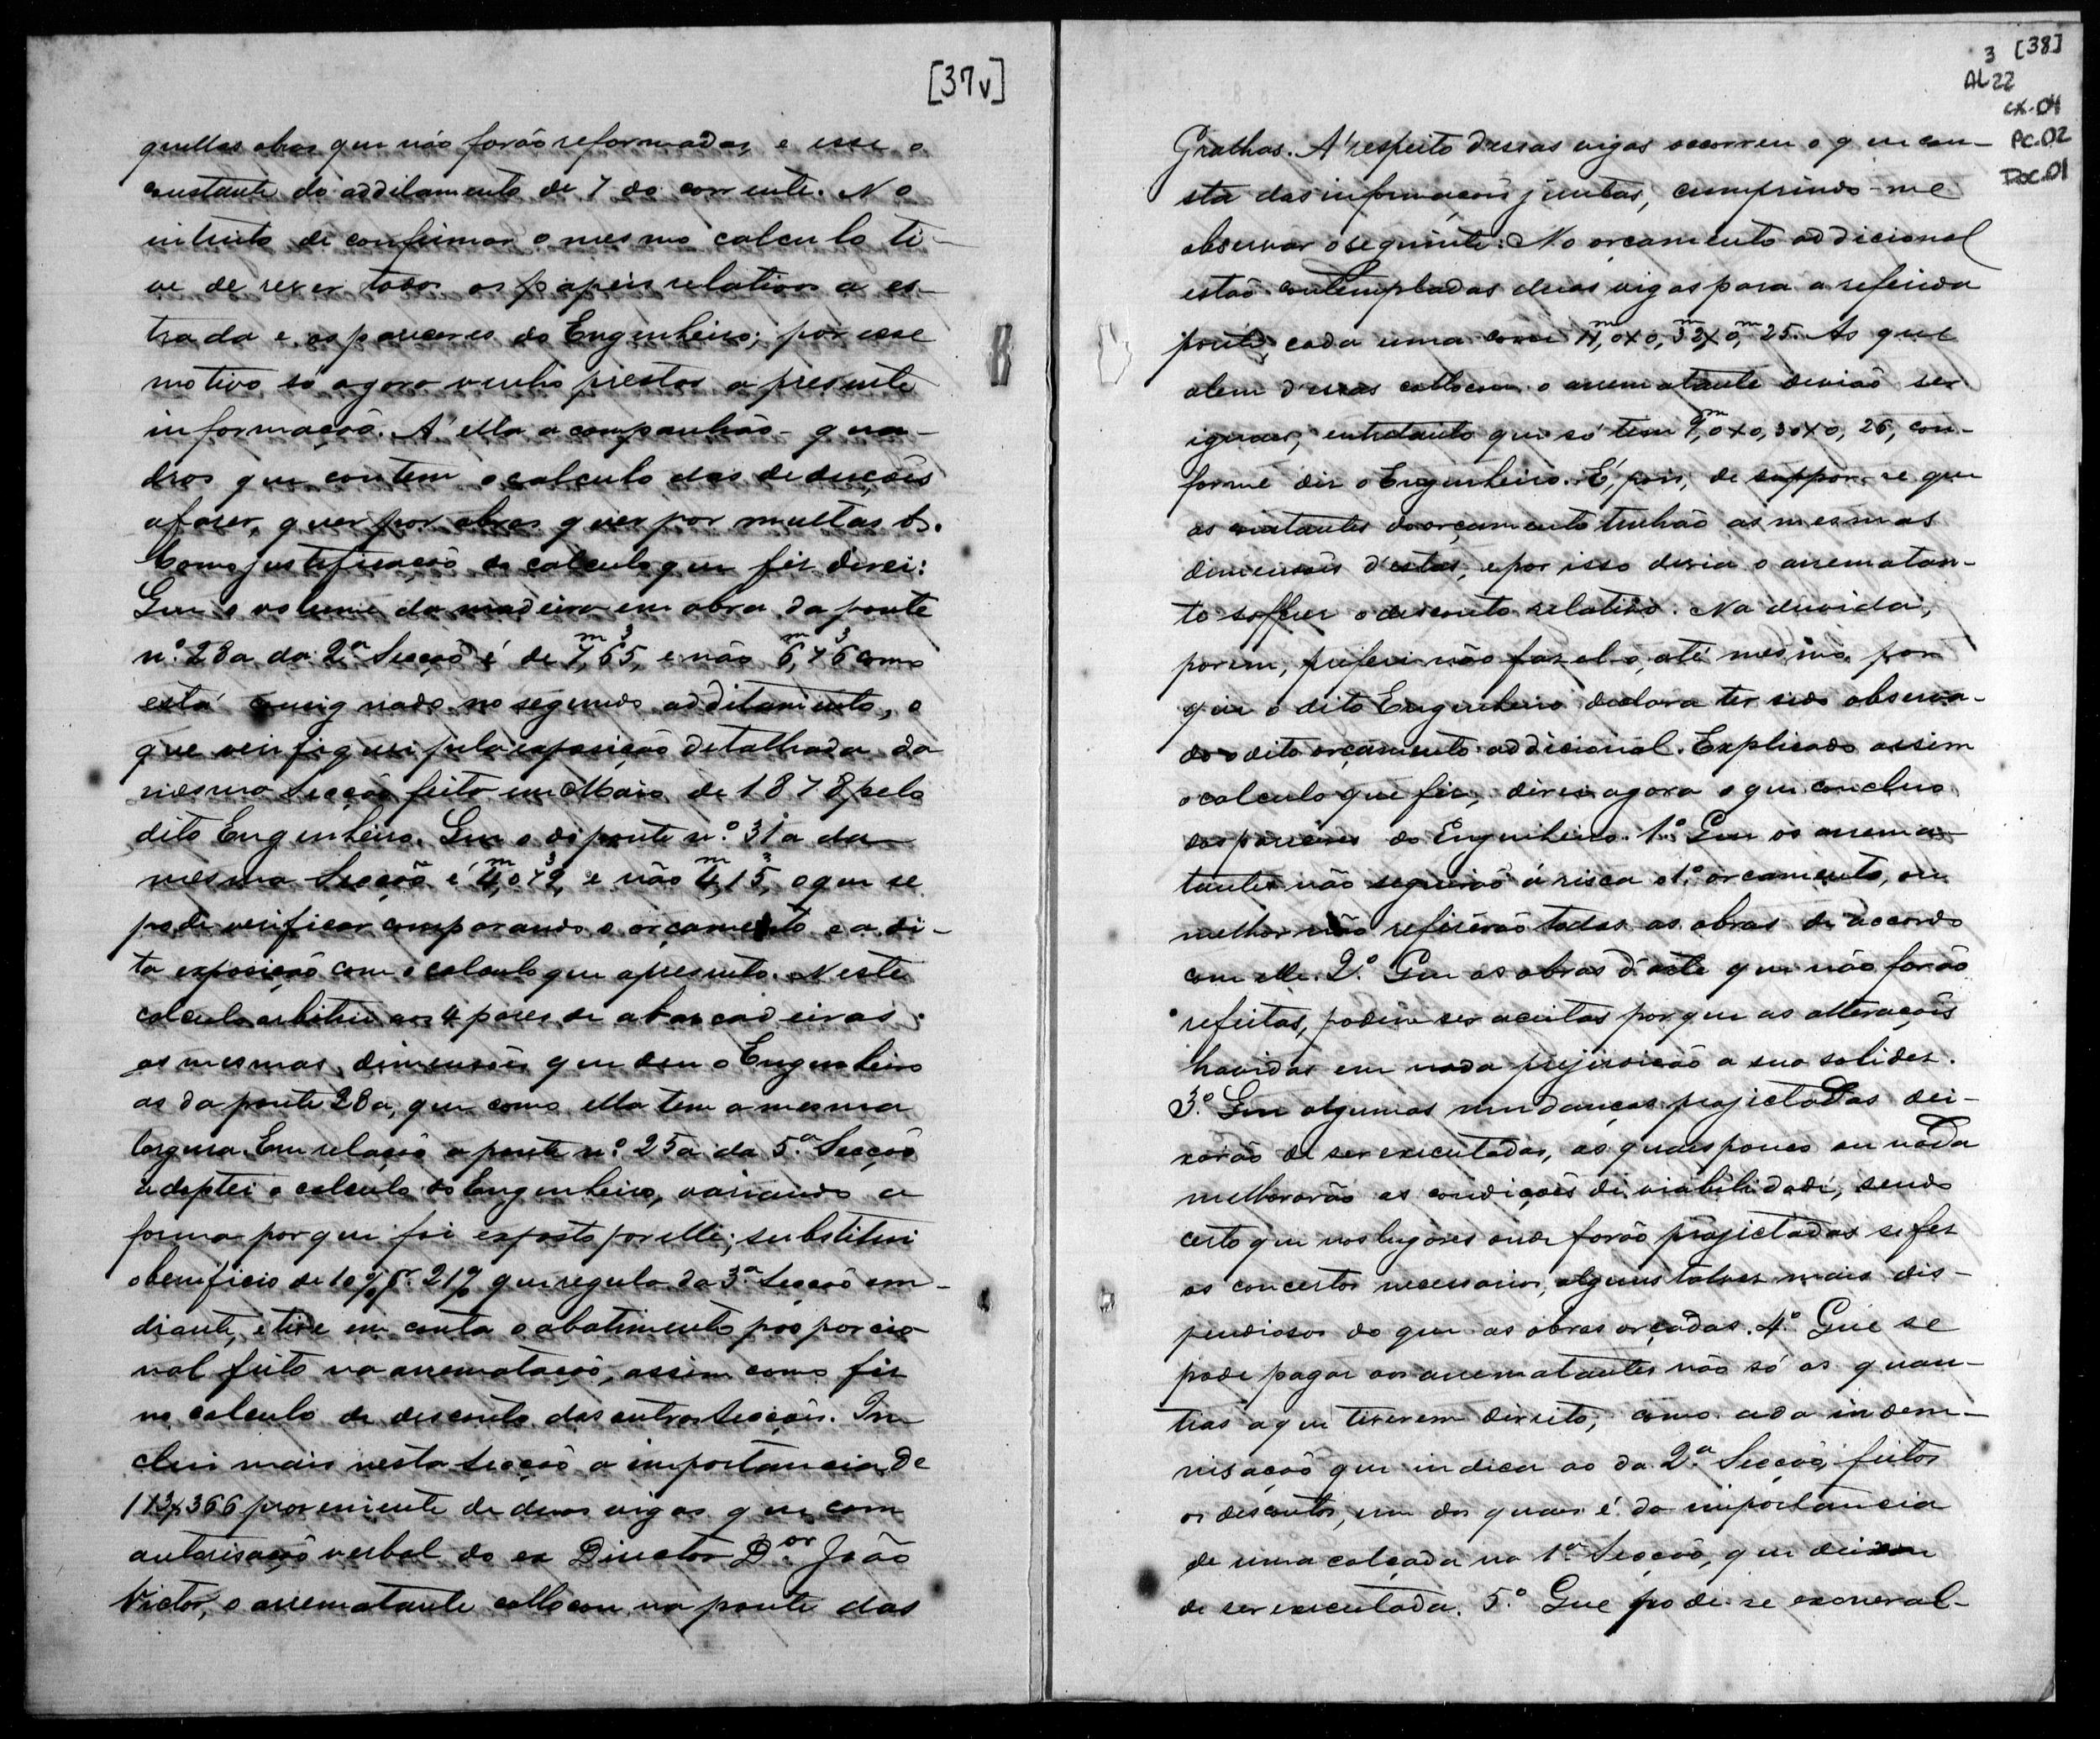 [37v]
quellas obras que não forão reformadas, e esse o
constante do additamento de 7 do corrente. No
intuito de confirmar o mesmo calculo ti-
ve de rever todos os papeis relativos a es-
trada e os pareceres do Engenheiro; por esse
motivo só agora venho prestar a presente
informação. A' ella acompanhão qua-
dros que contem o calculo das deducções
a fazer, quer por obras quer por multas &.
Como justificação do calculo que fiz direi:
Que o volume da madeira em obra da ponte
nº. 28a da 2ª Secção é de 7,65 m3, e não 6,76 m3 como
está consignado no segundo additamento, o
que verifiquei pela exposição detalhada da
mesma Secção feita em Maio de 1878 pelo
dito Engenheiro. Que o da ponte nº. 31a da
mesma Secção é 4,072 m3, e não 4,15 m3, o que se
pode verificar comparando o orçamento e a di-
ta exposição com o calculo que apresento. Neste
calculo arbitrei aos 4 pares de abraçadeiras
as mesmas dimensões que deu o Engenheiro
as da ponte 28a, que como ella tem a mesma
largura. Em relação a ponte nº. 25a da 5ª. Secção
adoptei o calculo do Engenheiro, variando a
forma porque foi exposto por elle; substitui
o beneficio de 10% pr. 21% que regula da 3ª. Secção em
diante, e tive em conta o abatimento proporcio-
nal feito na arrematação, assim como fiz
no calculo de desconto das outras Secções. In-
clui mais nesta Secção a importancia de
113$366 proveniente de duas vigas que com
autorisação verbal do ex Director Dor. João
Victor, o arrematante collocou na ponte das
3 [38]
AL22
CX.04
PC.02
DOC.01
Gralhas. A' respeito dessas vigas occorreu o que con-
sta das informações juntas, cumprindo-me
observar o seguinte: No orçamento addicional
estão contempladas duas vigas para a referida
ponte, cada uma com 11,m0x0,m32x0,m25. As que
alem d'essas collocou o arrematante devião ser
iguaes, entretanto que só tem 9,m0x0,30x0,26, con-
forme diz o Engenheiro. É, pois, de suppor-se que
as constantes do orçamento tenhão as mesmas
dimensões d'estas, e por isso devia o arrematan-
te soffrer o desconto relativo. Na duvida,
porem, preferi não fazel-o, até mesmo por
que o dito Engenheiro declara ter sido observa-
do o dito orçamento addicional. Explicado assim
o calculo que fiz, direi agora o que concluo
dos pareceres do Engenheiro. 1º. Que os arrema-
tantes não seguirão á risca o 1º. orçamento, ou
melhor não refizerão todas as obras de accordo
com elle. 2º. Que as obras d'arte que não forão
refeitas, podem ser aceitas porque as alterações
havidas em nada prejudicão a sua solidez.
3º. Que algumas mudanças projectadas dei-
xarão de ser executadas, as quaes pouco ou nada
melhorarão as condições de viabilidade, sendo
certo que nos lugares onde forão projectadas se fez
os concertos necessarios, alguns talvez mais dis-
pendiosos do que as obras orçadas. 4º. Que se
pode pagar aos arrematantes não só as quan-
tias a que tiverem direito, como a da indem-
nisação que indica ao da 2ª. Secção, feitos
os descontos, um dos quaes é da importancia
de uma calçada na 1ª. Secção, que deixou
de ser executada. 5º. Que pode-se exoneral-